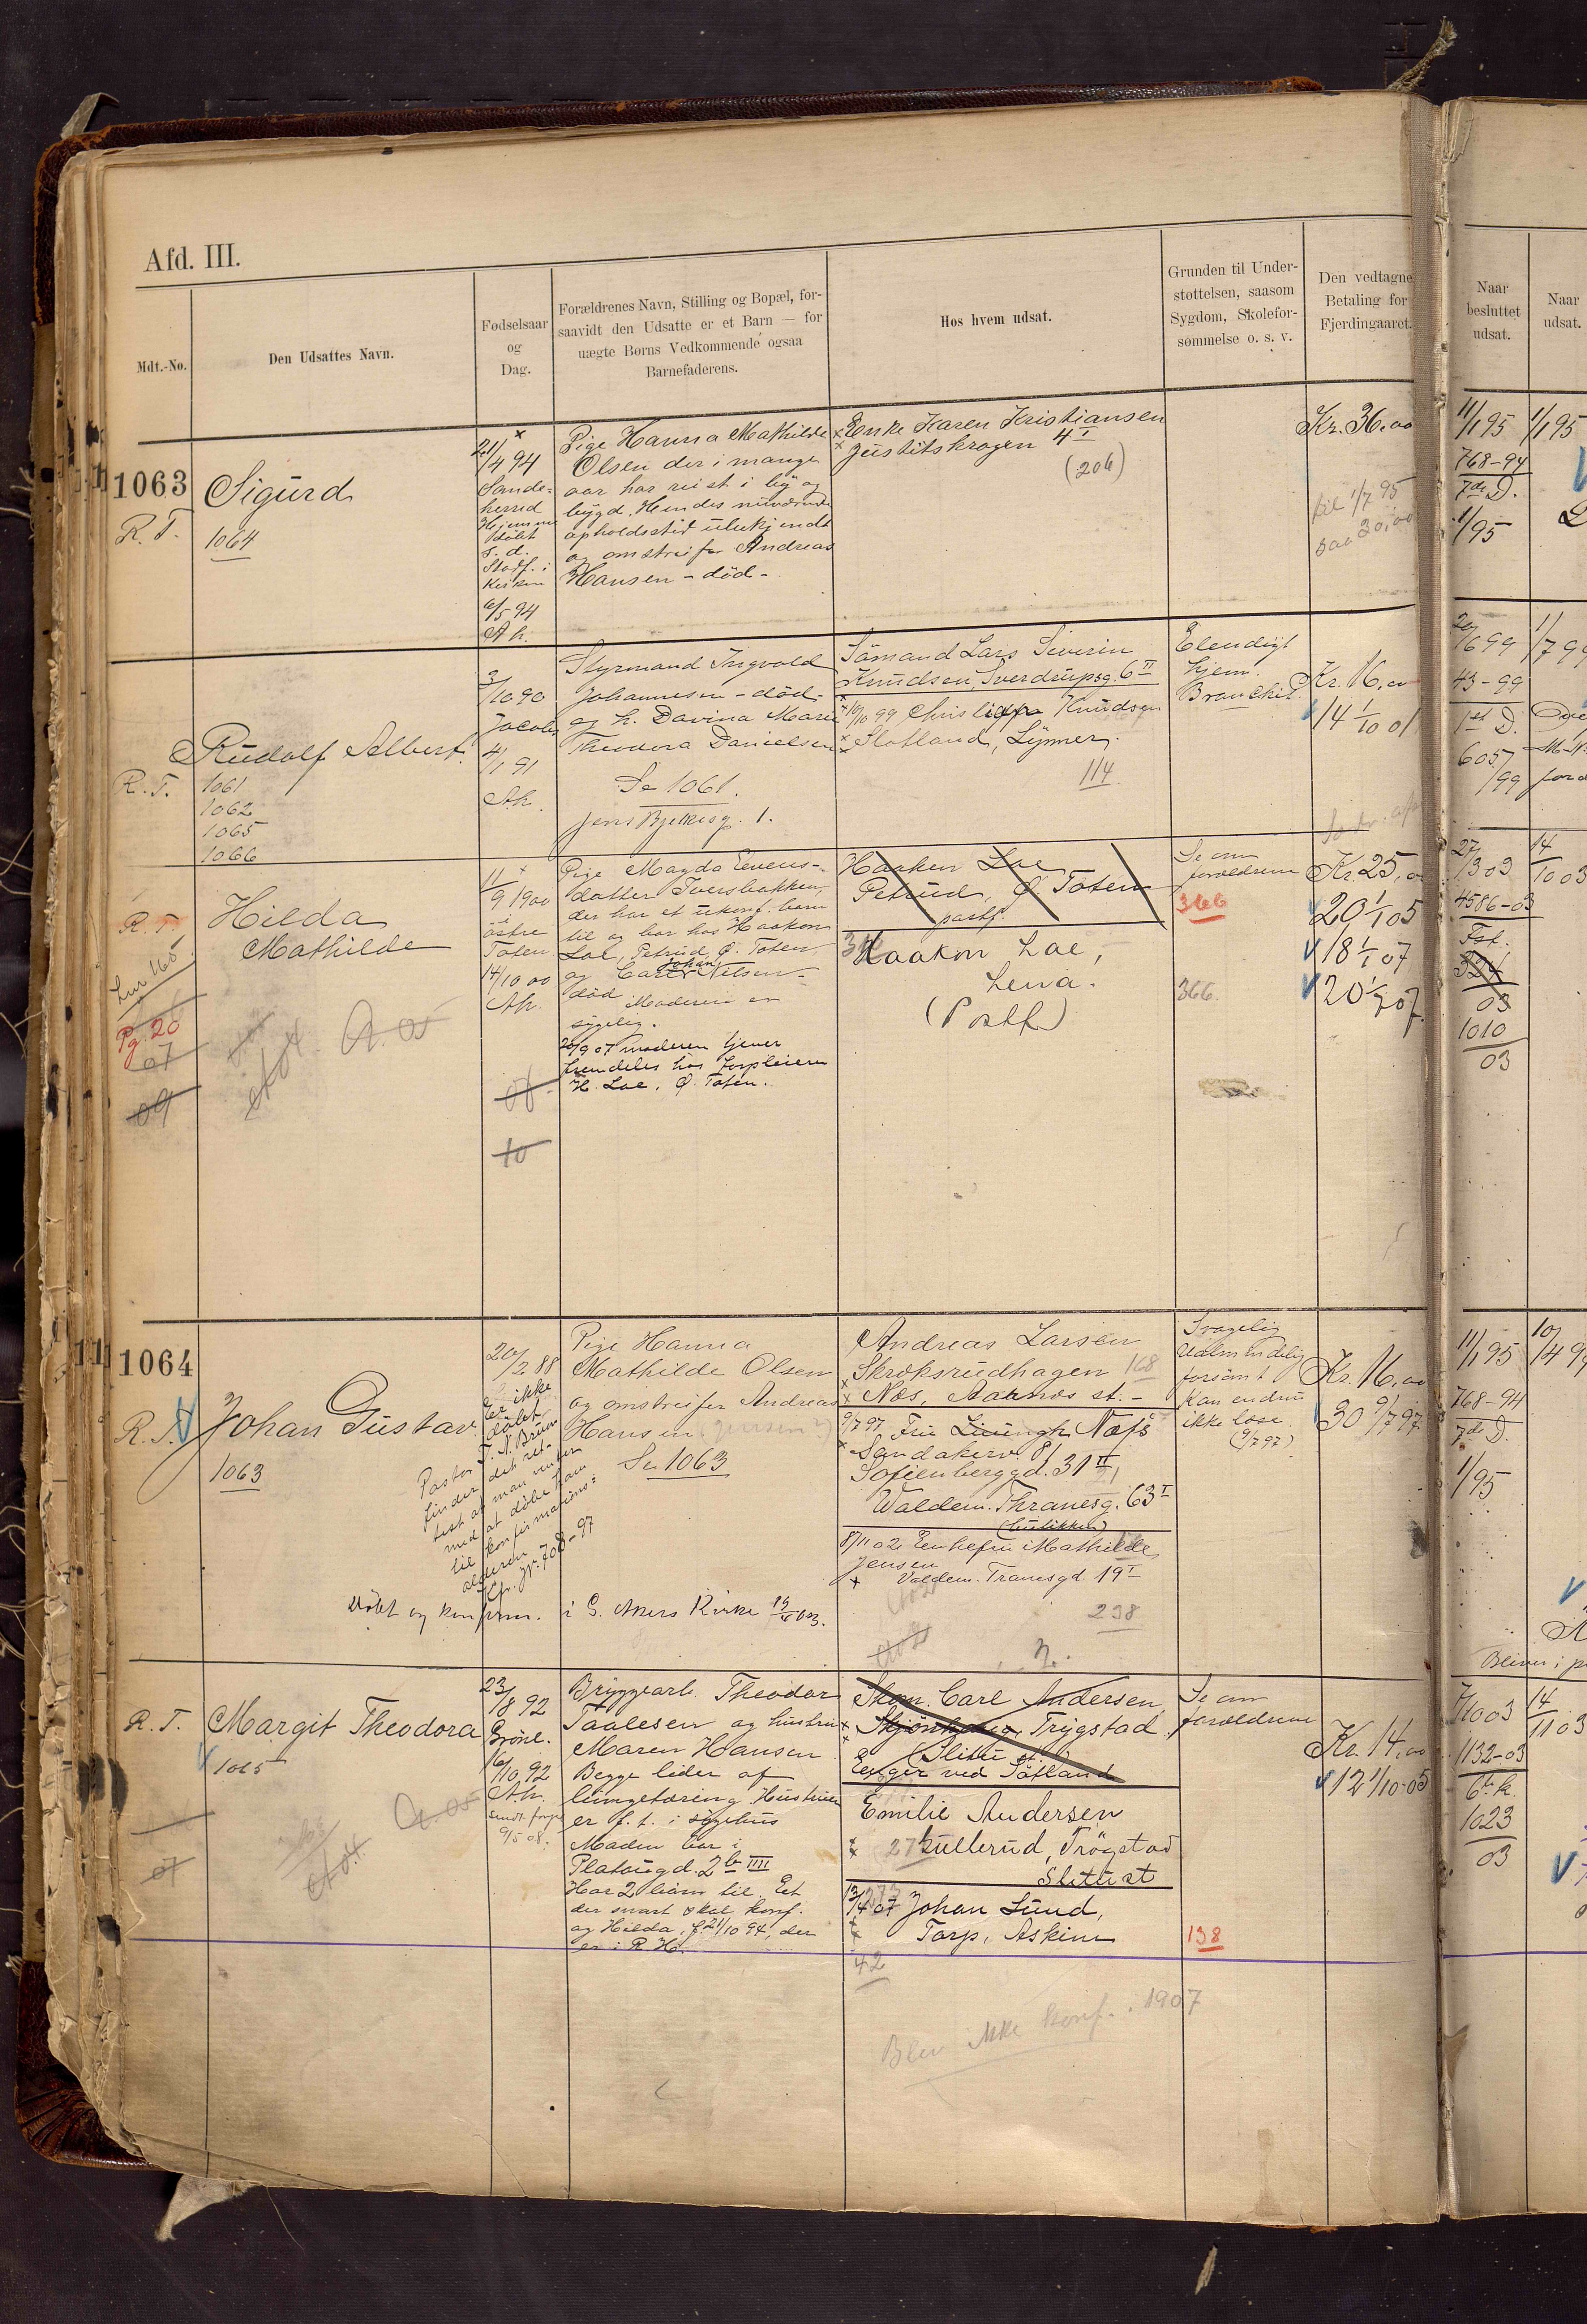 Afd. III.
Mdt.-No.
Den Udsattes Navn.
Fødselsaar
og
Dag.
Forældrenes Navn, Stilling og Bopæl, for-
saavidt den Udsatte er et Barn — for
uægte Børns Vedkommende ogsaa
Barnefaderens.
Hos hvem udsat.
Grunden til Under-
støttelsen, saasom
Sygdom, Skolefor-
sømmelse o. s. v.
Den vedtagne
Betaling for
Fjerdingaaret.
Naar
besluttet
udsat.
Naar
udsat.
1063
R. T.
Sigurd
1064
21/4 94
Sande-
herred
Hjemme
døbt
s. d.
Stadf. i
Kirken
6/5 94
Ah.
Pige Hanna Mathilde
Olsen der i mange
aar har reist i by og
bygd. Hendes nuværende
opholdssted ubekjendt
og omstreifer Andreas
Hansen - død -
Enke Karen Kristiansen
Justitskrogen 4 I
(206)
Kr. 36,00
til 1/7 95
30,00
11/1 95
1/1 95
768-94
7de D.
1/95
R. T.
Rudolf Albert
1061
1062
1065
1066
3/10 90
Jacobs
4/1 91
Ah.
Styrmand Ingvold
Johannesen - død -
og h. Davina Marie
Theodora Danielsen
Se 1061.
Jens Bjelkesg. 1.
Sömand Lars Severin
Knudsen, Sverdrupsg. 6 II
10/10 99 Christoffer Knudsen
Slotland, Lynnør.
114
Elendigt
hjem.
Bronchit.
Kr. 16,00
14 1/10 01
20/6 99
1/7 99
43-99
1st D.
605/99
R. T.
Pg. 20
07
09
Hilda
Mathilde
11/9 1900
östre
Toten
14/10 00
Ah.
08
10
Pige Magda Evens-
datter Iversbakken,
der har et ukonf. barn
til og bor hos Haakon
Loe, Petrud, Ø. Toten,
og Carl Johan Nilsen -
död Moderen er
sygelig.
20/9 07 moderen tjener
fremdeles hos forpleieren
H. Loe, Ø. Toten.
Haaken Loe
Petrud, Ø. Toten
postf.
Haakon Loe,
Lena.
(Postf.)
Se om
foreldrene
366
366.
Kr. 25,00
20 1/1 05
18 1/1 07
20 1/7 07
27/3 03
14/10 03
4586-03
Fst.
324
03
1010
03
1064
R. T.
Johan Gustav
1063
20/2 88
Er ikke
döbt.
Pastor T. N. Bruun
finder det ret-
test at man venter
med at døbe ham
til konfirmations-
alderen
Jfr. Jr. 708-97
Døbt og konfirm. i G. Akers Kirke 19/4 03.
Pige Hanna
Mathilde Olsen
og omstreifer Andreas
Hansen (Jensen?)
Se 1063
Andreas Larsen
Skroksrudhagen 168
Næs, Aarnes st. -
9/7 97, Fru Næss
Sandakerv. 8/
Sofienberggd. 31 II
Waldem. Thranesg. 63 I
(butikken)
8/11 02 Enkefru Mathilde
Jensen
Valdem. Tranesgd. 19 I
238
Svagelig
Ualmindelig
forsömt
Kan endnu
ikke læse.
(9/7 97)
Kr. 16,00
30 9/7 97
11/1 95
10/4 95
768-94
7de D.
1/95
R. T.
Margit Theodora
1065
07
23/8 92
Grönl.
16/10 92
Ah.
9/5 08.
Bryggearb. Theodor
Paalesen og hustru
Maren Hansen
Begge lider af
lungetæring. Hustruen
er f. t. i sygehus
Manden bor i
Platougd. 2 b IIII
Har 2 börn til. Et
der snart skal konf.
og Hilda f. 21/10 94, der
er i R. H.
Skom. Carl Andersen
Skjönhaug, Trygstad
(Slitu st.)
Enger ved Söfland
Emilie Andersen
Kullerud, Trögstad
Slitu st
13/4 07 Johan Lund,
Torp, Askim
42
Blev ikke konf. 1907
Se om
foreldrene
138
Kr. 14,00
12 1/10-05
7/10 03
14/11 03
1132-03
6te k.
1023
03